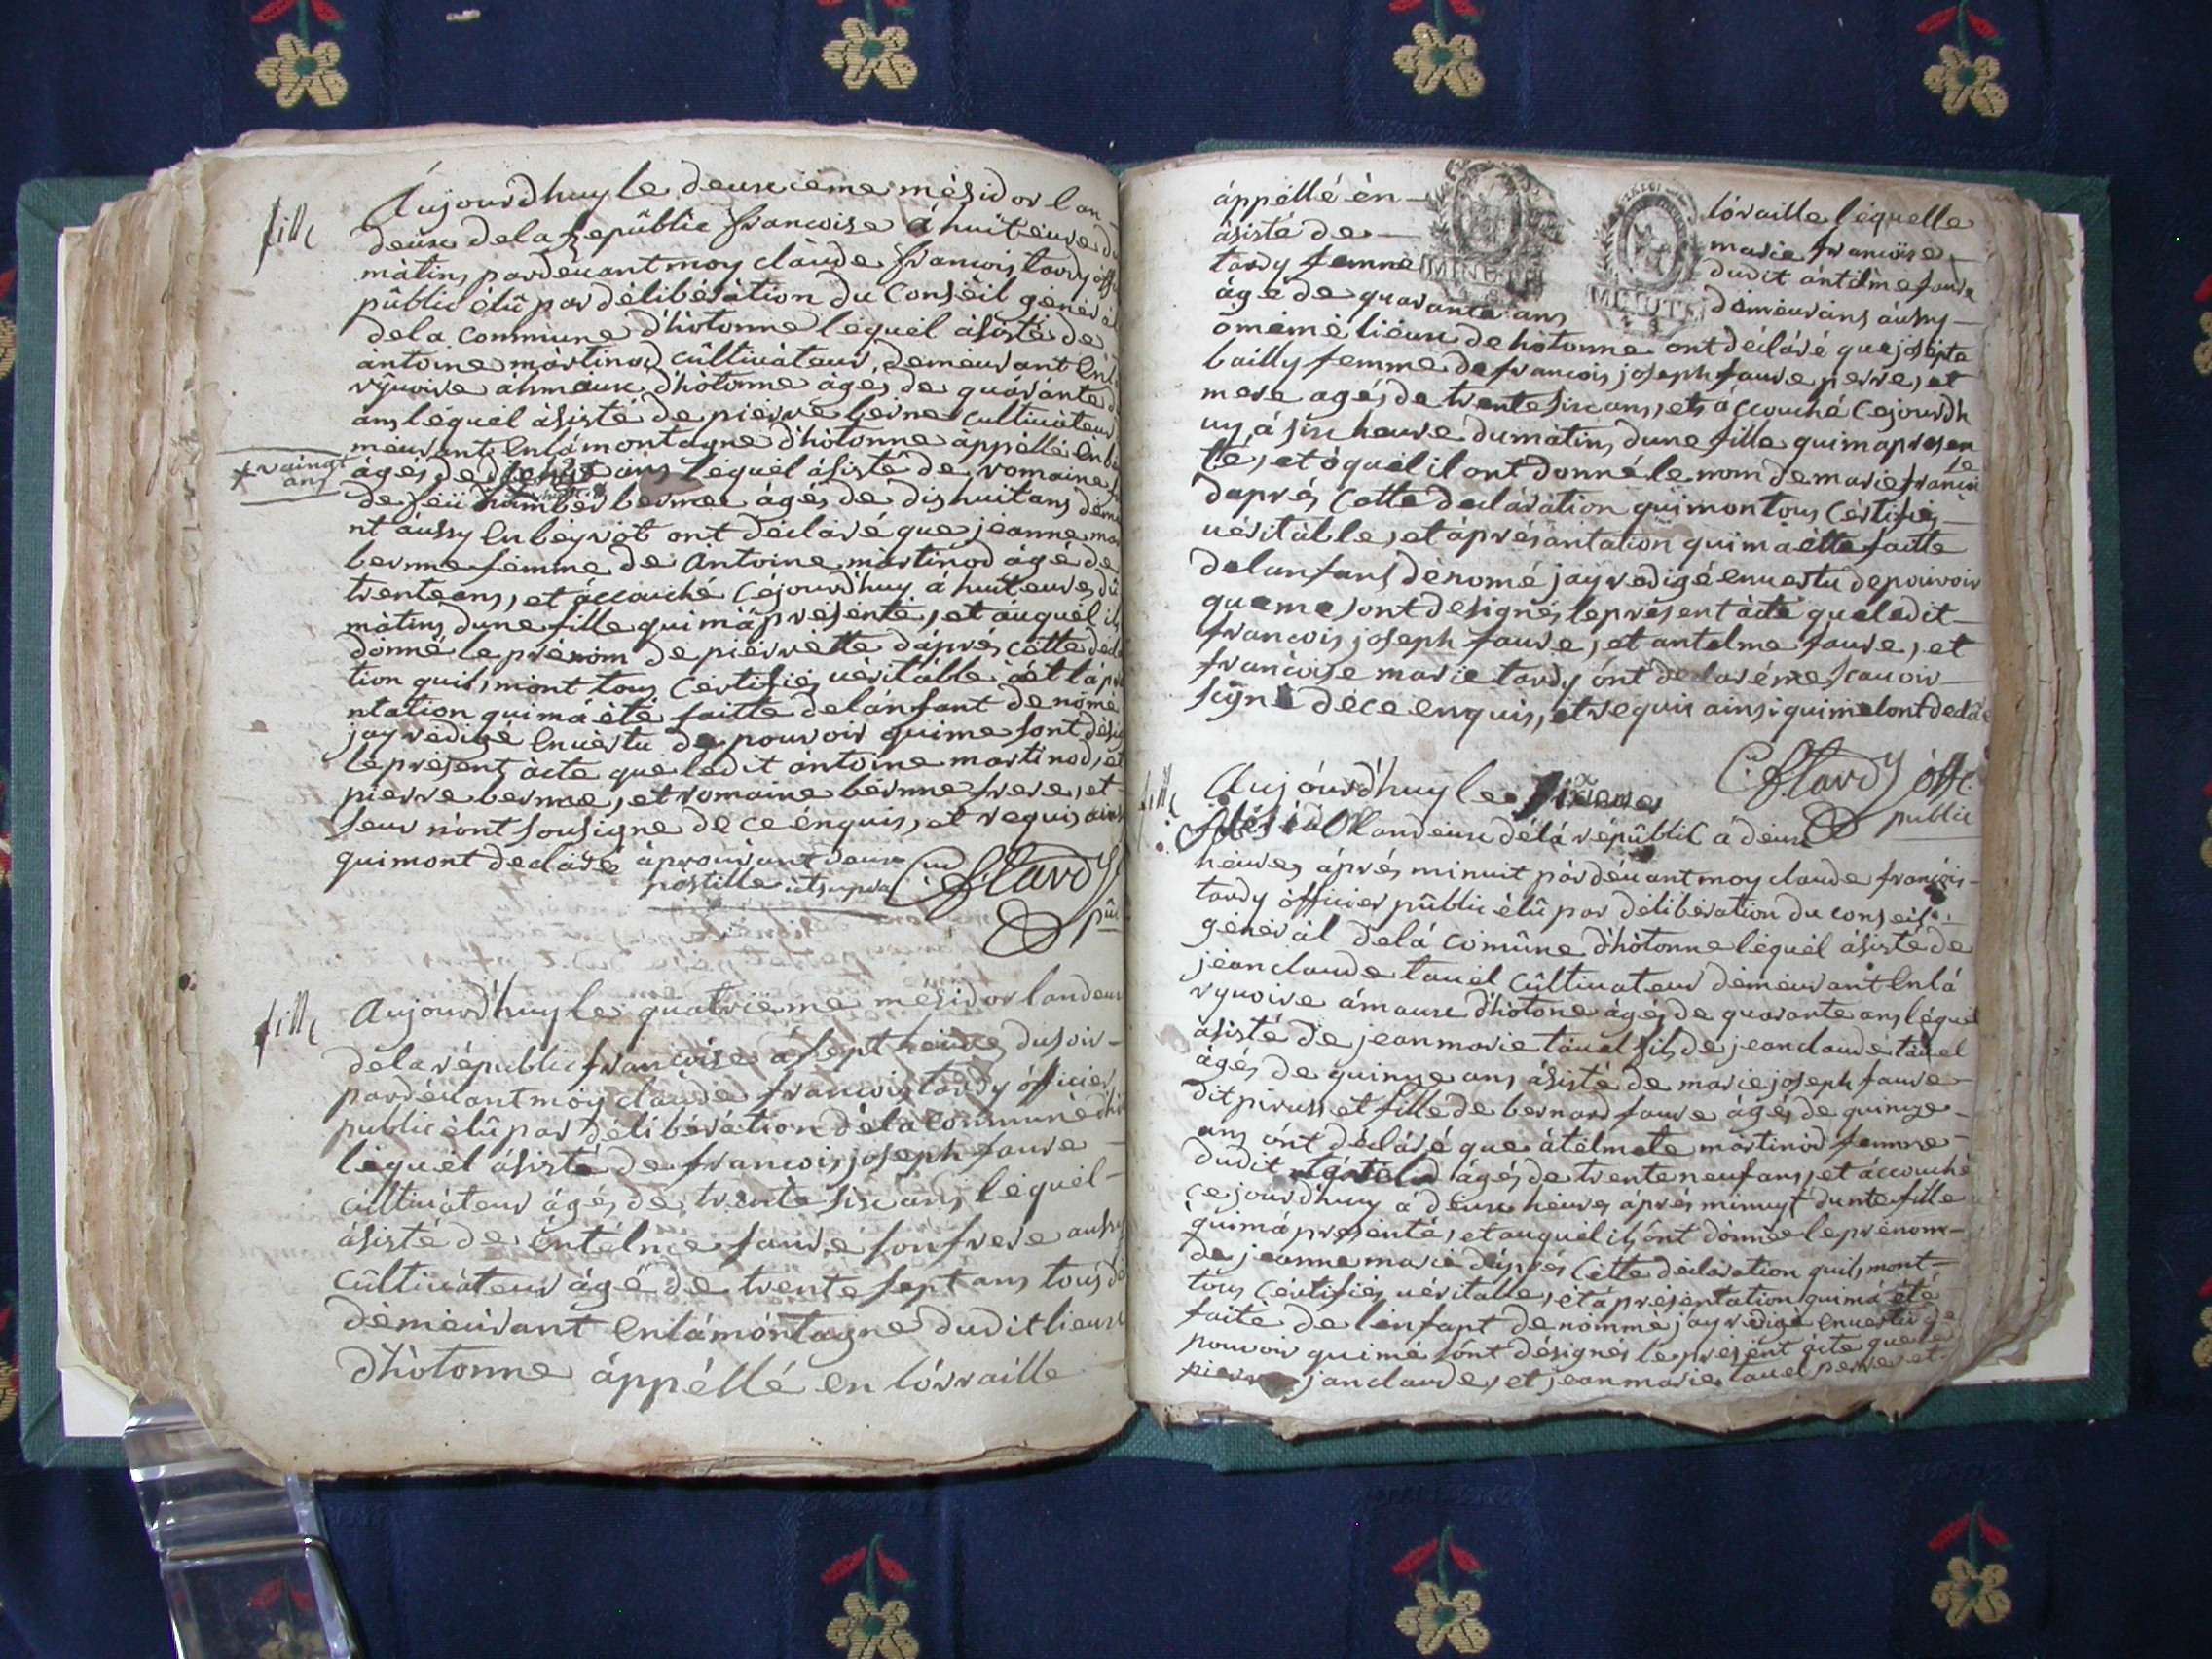 fille
Aujourdhuy le deuxieme mésidor lan
deux de la republic francoise á huit eure du
mátins pardevant moy claude francois tardy off
públic élû par délibérátion du Conséil géneral
de la commune d'hotonne léquél ásisté de
antoine martinod cûltiváteur demeurant en la
rÿvoire áhmeaux d'hótonne áges de quáránte
ans léquél ásisté de piérre berne cultiváteur
meurant en lá montagne d'hótonne áppéllé en
áges de léquél ásisté de romaine
+ vaingt
ans
de feü humbert bernne ágés de dishuit ans
nt áussy en béyrót ont déclaré que jeanne
bernne fémme de Antoine mártinod ágé de
trente ans, et áccouché cejourdhuy á huit eure du
mátins dune fille qui má présenté, et áuquél il
donné le prénom de piérrétte dáprés cétte
tion quils mont tous cértifiés véritáble
ntation qui má été faitte de lánfant dénomé
jay rédigé en vértu de pouvoir qui me sont
le présent ácte que ledit ántoine martinod, et
pierre bernne, et romaine bérnne frere, et
seur n'ont sousigne de ce énquis, et requis
qui mont declaré áprouvant deux
postille ut supra C.f Tardy
pub
fille
Aujourdhuy le quatrieme mésidor lan deux
de la républic francoise á sept heures du soir
pardévant moy claude francois tardy officier
public élû par délibérátion dé la commune
léquél ásisté de francois joseph faure
cultiváteur ágés de trente six ans léquél
ásisté de éntélme faure son frere aussy
cûltiváteur ágé de trente sept ans tous
démeurant en lá móntagne dudit lieux
d'hótonne áppéllé en lórraille
áppéllé én lóraille léquelle
ásisté de marie francoise
tardy femme dudit ántélme faure
áge de quarante ans demeurans áussy
MINUTE
MINUTE
o mémé liéux de hótonne ont déclaré que josépte
bailly femme de francois joseph faure perre, et
mere agés de trente six ans, et áccouché cejourdh
uy á six heure du mátins dune fille qui ma presen
té, et áquél il ont donné le nom de marie francoi
se
daprés cette declárátion qui mon tous cértifies
uéritáble, et áprésantation qui má étté faitte
de lanfant dénomé jay redigé en vertu de pouivoir
que me sont designés le présent ácte que ledit
francois joseph faure, et antelme faure, et
francoise marie tardy ónt declaré ne scavoir
signé de ce enquis, et requis ainsi qui me lont declaré
C.f Tardy óffc.
public
fille
Aujóurd'huy le sixieme
Mésidor lan deux dé lá républic á deux
heures áprés minuit párdévant moy claude francóis
tardy óffficier públic élû par délibérátion du conseil
géneral de lá comúne d'hótonne léquél ásisté de
jéan claude tavél cûltivateur démeurant en lá
ryvoire ámaux d'hótone ágés de quarante ans léquél
ásisté de jean marie távél fils de jean claude távél
ágés de quinze ans ásisté de marie joseph faure
dit piruss et fille de bernard faure ágés de quinze
ans ónt décláré que átélmete mártinod femme
dudit ágés de trente neuf ans, et áccouché
cejourdhuy á deux héures áprés minuyt dunte fille
qui má présenté, et auquél ils ónt dónné le prénom
de jeanne marie dáprés cétte déclaration quils mont
tous cértifiés véritable, et áprésentation qui má été
faite de lénfant dénommé jáy rédigé en vertu de
pouvoir qui mé sónt désignes le présent ácte que le
jan claude, et jean marie tavel perre et